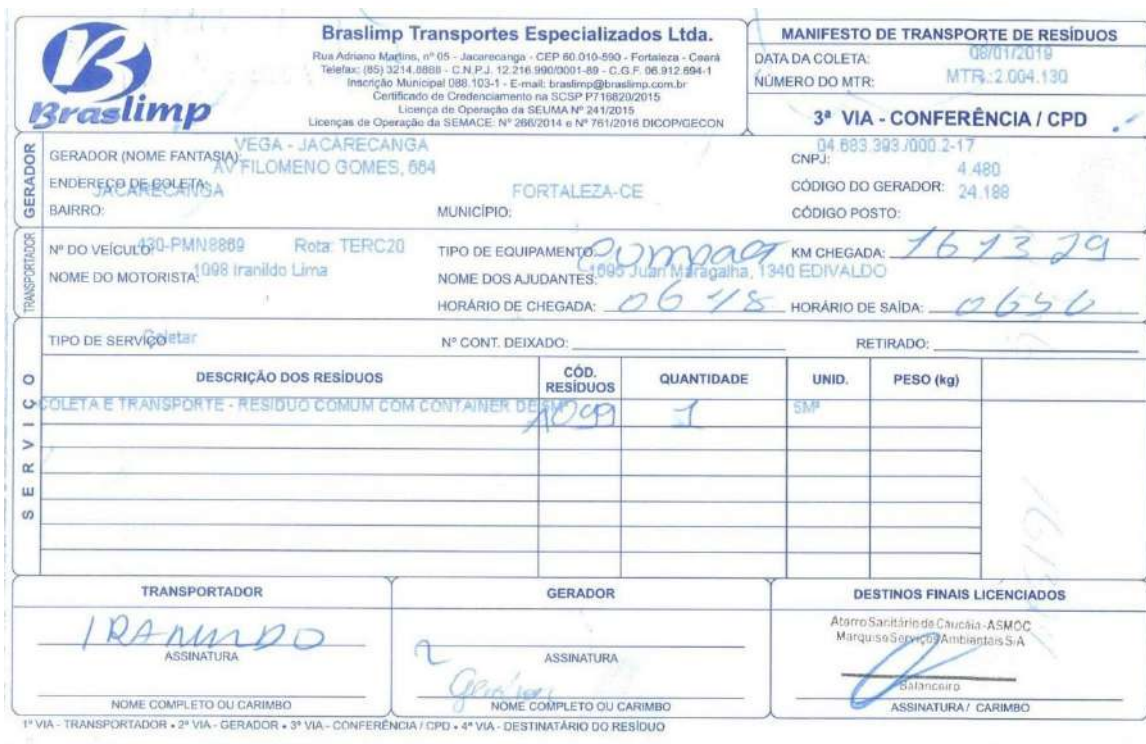 Braslimp
Braslimp Transportes Especializados Ltda.
Rua Adriano Martins, nº 05 - Jacarecanga - CEP 60.010-590 - Fortaleza - Ceará
Telefax: (85) 3214.8888 - C.N.P.J. 12.216.990/0001-89 - C.G.F. 06.912.694-1
Inscrição Municipal 088.103-1 - E-mail: braslimp@braslimp.com.br
Certificado de Credenciamento na SCSP P716820/2015
Licença de Operação da SEUMA Nº 241/2015
Licenças de Operação da SEMACE: Nº 266/2014 e Nº 761/2016 DICOP/GECON
MANIFESTO DE TRANSPORTE DE RESÍDUOS
DATA DA COLETA: 08/01/2019
NÚMERO DO MTR: MTR.:2.004.130
3ª VIA - CONFERÊNCIA / CPD
GERADOR
GERADOR (NOME FANTASIA): VEGA - JACARECANGA
CNPJ: 04.683.393./000.2-17
ENDEREÇO DE COLETA: AV FILOMENO GOMES, 664
CÓDIGO DO GERADOR: 4.480
BAIRRO: JACARECANGA
MUNICÍPIO: FORTALEZA-CE
CÓDIGO POSTO: 24.188
TRANSPORTADOR
Nº DO VEÍCULO: 430-PMN8869 Rota: TERC20
TIPO DE EQUIPAMENTO:
KM CHEGADA: 161329
NOME DO MOTORISTA: 1098 Iranildo Lima
NOME DOS AJUDANTES: 1095 Juan Maragalha, 1340 EDIVALDO
HORÁRIO DE CHEGADA: 0618
HORÁRIO DE SAÍDA:
SERVIÇO
TIPO DE SERVIÇO: Coletar
Nº CONT. DEIXADO:
RETIRADO:
DESCRIÇÃO DOS RESÍDUOS CÓD. RESÍDUOS QUANTIDADE UNID. PESO (kg)
COLETA E TRANSPORTE - RESIDUO COMUM COM CONTAINER DE 5M³ 1099 1 5M³
TRANSPORTADOR
IRANILDO
ASSINATURA
NOME COMPLETO OU CARIMBO
GERADOR
ASSINATURA
NOME COMPLETO OU CARIMBO
DESTINOS FINAIS LICENCIADOS
Aterro Sanitário de Caucáia-ASMOC
Marquise Serviços Ambientais S/A
Balanceiro
ASSINATURA / CARIMBO
1ª VIA - TRANSPORTADOR • 2ª VIA - GERADOR • 3ª VIA - CONFERÊNCIA / CPD • 4ª VIA - DESTINATÁRIO DO RESÍDUO